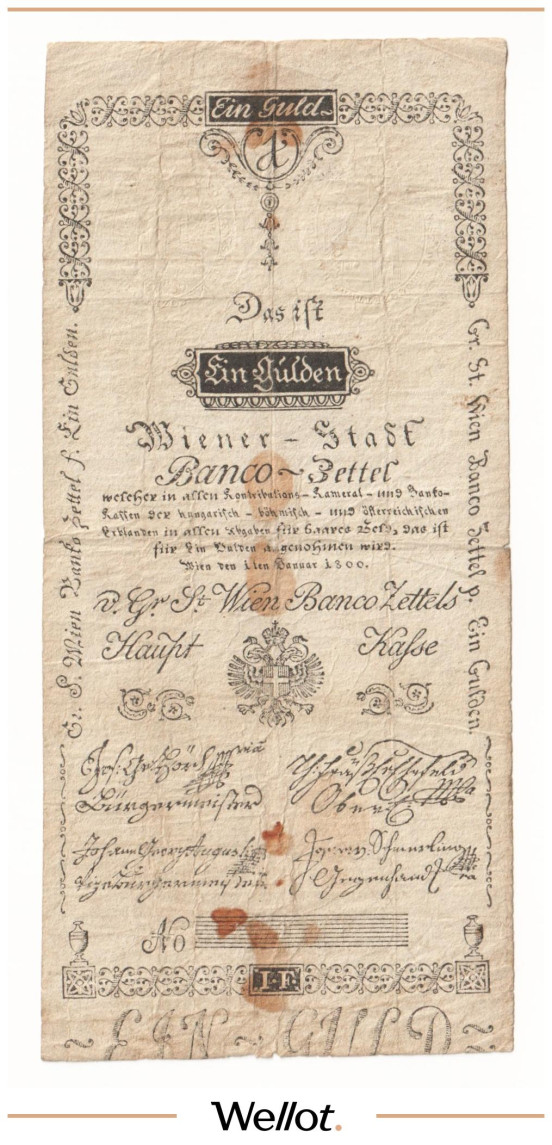 Ein Guld~
1
Das ist
Ein Gulden
Wiener - Stadt
Banco ~ Zettel
welcher in allen Kontributions - Kameral - und Banko-
Kassen der hungarisch - böhmisch - und österreichischen
Erblanden in allen Abgaben für baares Geld, das ist
für Ein Gulden angenohmen wird.
Wien den 1ten Januar 1800.
v. Gr. St. Wien Banco Zettels
Haupt Kasse
Gr. S. Wien Banko Zettel f. Ein Gulden.
Gr. St. Wien Banco Zettel p. Ein Gulden.
Bürgermeister
Ober
Johann Georg Augusti
v. Schmerling
Vizebürgermeister
Gegenhandl
No
1 F.
~ EIN ~ GULD ~
Wellot.